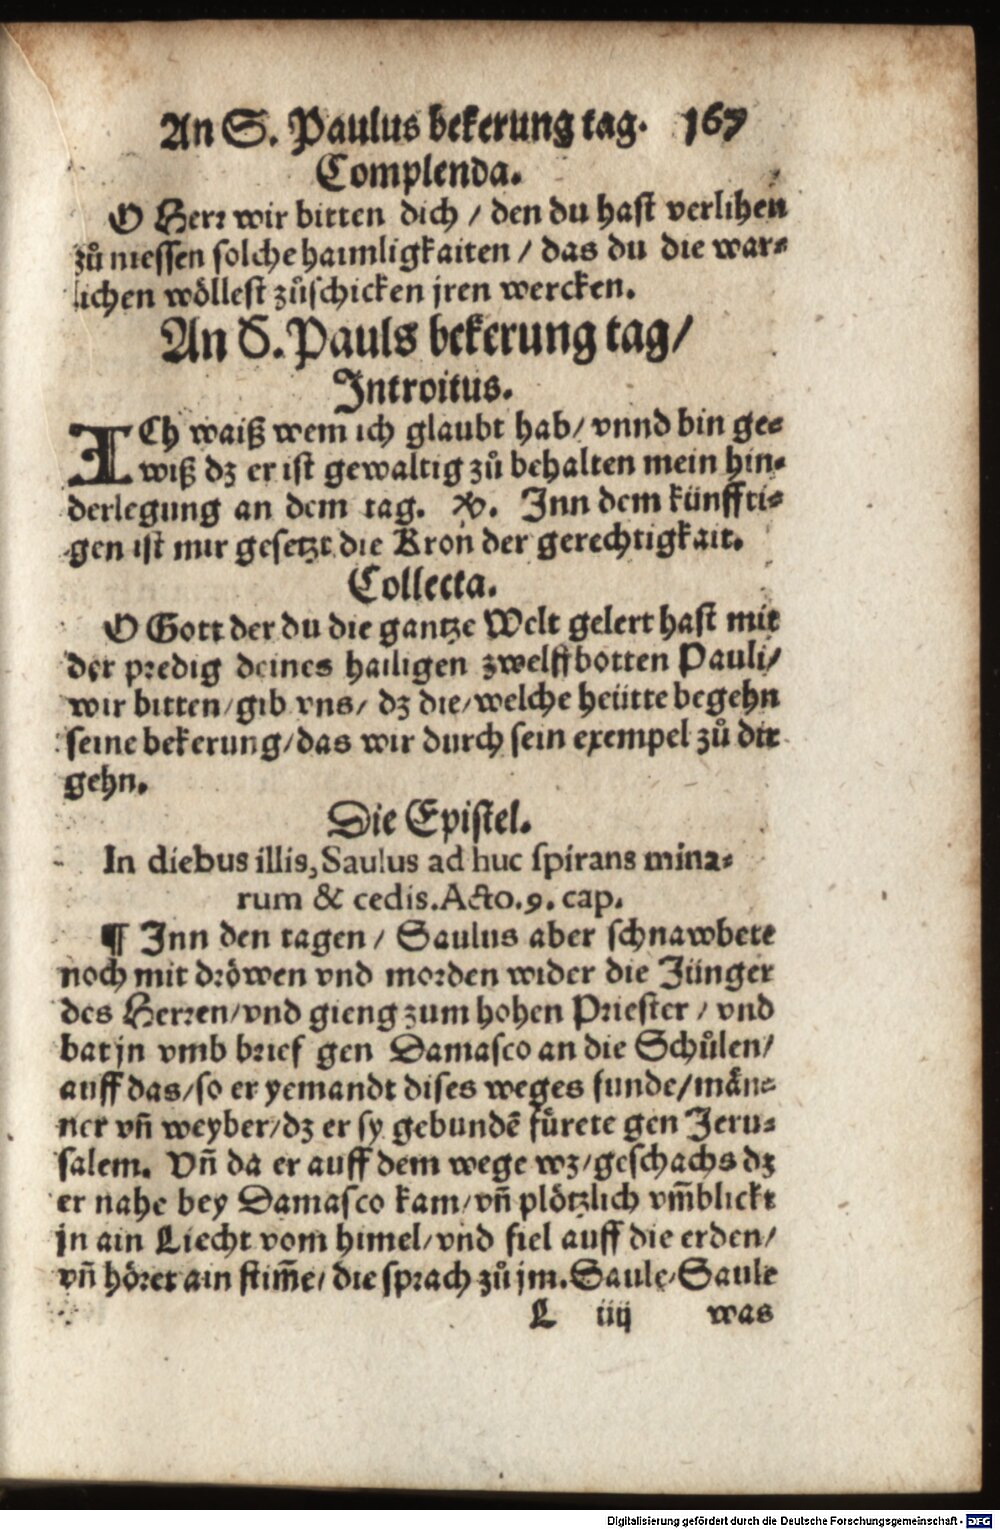 An S. Paulus bekerung tag. 167
Complenda.
O Herr wir bitten dich / den du hast verlihen
zů niessen solche haimligkaiten / das du die war⸗
lichen wöllest zůschicken jren wercken.
An S. Pauls bekerung tag/
Introitus.
ICh waiß wem ich glaubt hab/ vnnd bin ge⸗
wiß dz er ist gewaltig zů behalten mein hin⸗
derlegung an dem tag. V. Inn dem künffti⸗
gen ist mir gesetzt die Kron der gerechtigkait.
Collecta.
O Gott der du die gantze Welt gelert hast mit
der predig deines hailigen zwelffbotten Pauli/
wir bitten/ gib vns/ dz die/ welche heütte begehn
seine bekerung/ das wir durch sein exempel zů dir
gehn.
Die Epistel.
In diebus illis, Saulus ad huc spirans mina⸗
rum & cedis. Acto. 9. cap.
¶ Inn den tagen / Saulus aber schnawbete
noch mit dröwen vnd morden wider die Jünger
des Herren/ vnd gieng zum hohen Priester / vnd
bat jn vmb brief gen Damasco an die Schůlen/
auff das/ so er yemandt dises weges funde/ män⸗
ner vñ weyber/ dz er sy gebundē fůrete gen Jeru⸗
salem. Vñ da er auff dem wege wz/ geschachs dz
er nahe bey Damasco kam/ vñ plötzlich vm̃blickt
jn ain Liecht vom himel/ vnd fiel auff die erden/
vñ höret ain stim̃e/ die sprach zů jm. Saule/ Saule
L iiij was
Digitalisierung gefördert durch die Deutsche Forschungsgemeinschaft - DFG